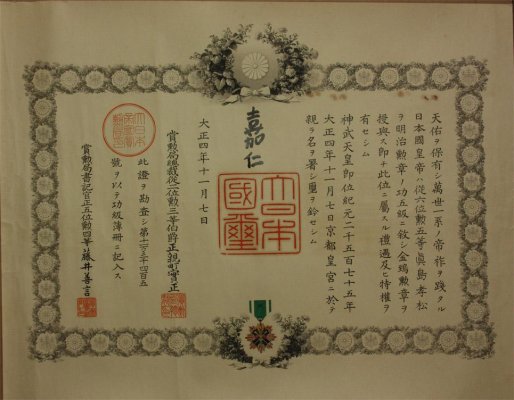 天佑ヲ保有シ萬世一系ノ帝祚ヲ踐タル
日本國皇帝ハ從六位勲五等眞島孝松
ヲ明治勲章ノ功五級ニ敍シ金鵄勲章ヲ
授與ス即チ此位ニ屬スル禮遇及ヒ特權ヲ
有セシム
神武天皇即位紀元二千五百七十五年
大正四年十一月七日京都皇宮ニ於テ
親ラ名ヲ署シ璽ヲ鈐セシム
嘉仁
大日本國璽
大正四年十一月七日
賞勲局總裁從二位勲三等伯爵正親町實正
此證ヲ勘査シ第十二百四五
號ヲ以テ功級簿冊ニ記入ス
賞勲局書記官正五位勲四等藤井善言